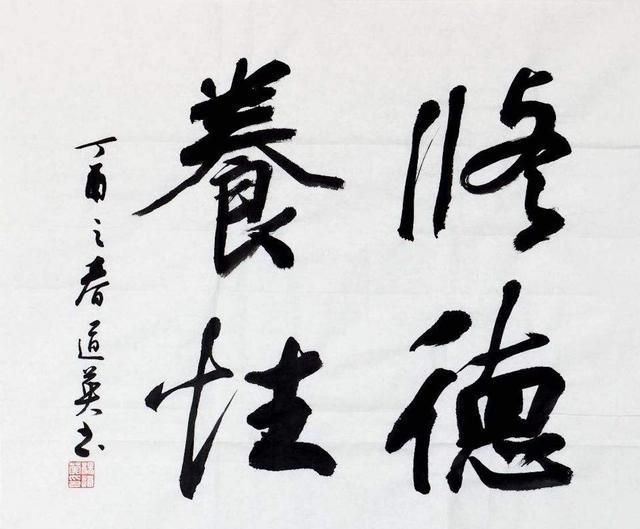 修德
養性
丁酉之春道英书